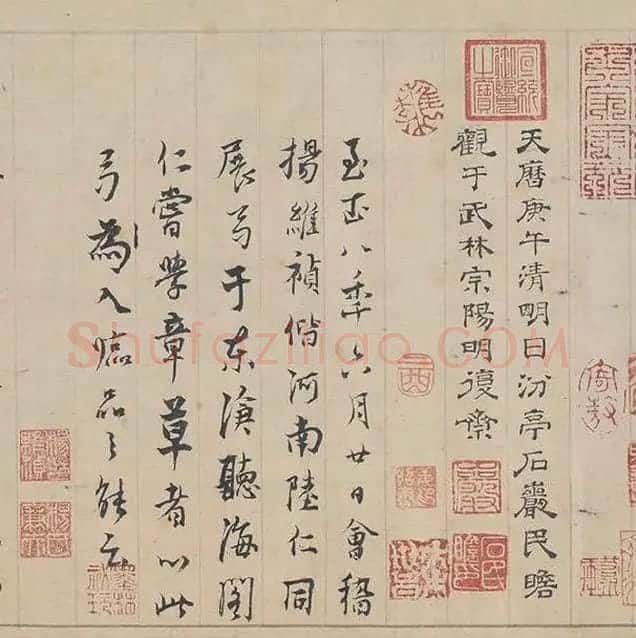 天曆庚午清明日汾亭石巖民瞻
觀于武林宗陽明復齋
至正八季六月廿日會稽
揚維禎偕河南陸仁同
展弓于东滄聽海閣
仁嘗學章草者以此
弓為入臨品之能云
宣統御覽之寶
Shufaziliao.COM